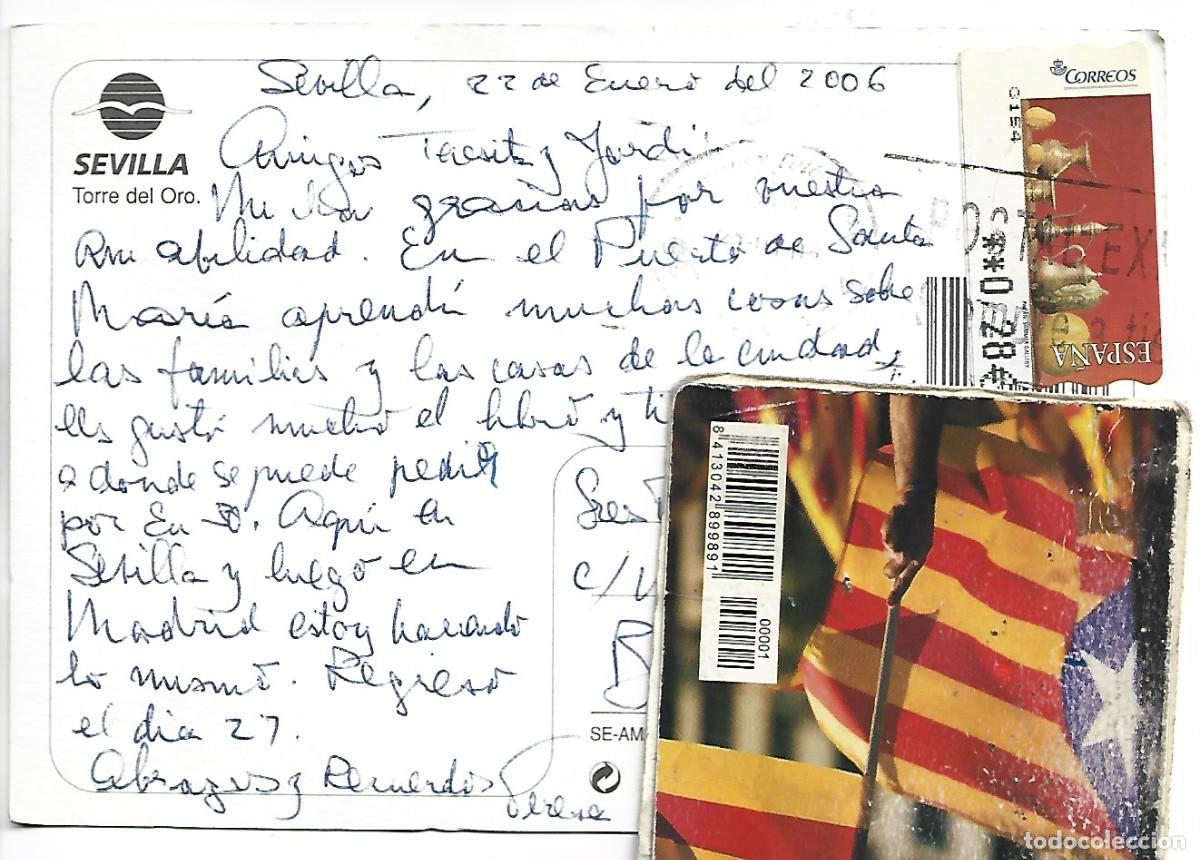 Sevilla, 22 de Enero del 2006
Amigos Teresita y Jordi
Mucha gracias por vuestra
amabilidad. En el Puerto de Santa
María aprendí muchas cosas sobre
las familias y las casas de la ciudad,
les gustó mucho el libro y
a donde se puede pedir
por Aquí en
Sevilla y luego en
Madrid estoy haciendo
lo mismo. Regreso
el dia 27.
Abrazos y Recuerdos
SEVILLA
Torre del Oro.
CORREOS
0154
**0,28*
ESPAÑA
POSTAL EX
c/
B
SE-AM
8413042899891
00001
todocoleccion